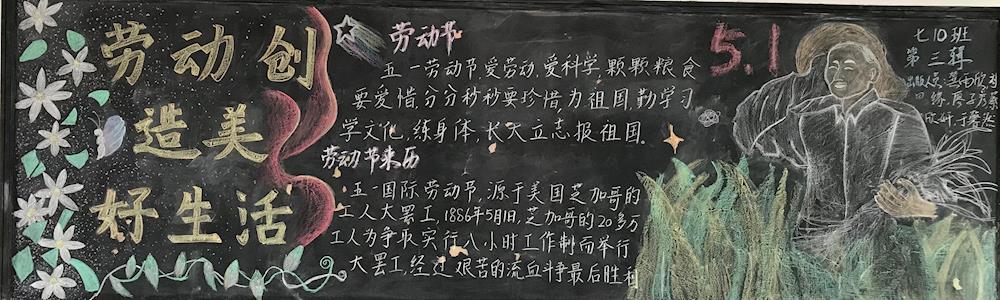 劳动创
造美
好生活
劳动节
五一劳动节,爱劳动,爱科学,颗颗粮食
要爱惜,分分秒秒要珍惜,为祖国,勤学习
学文化,练身体,长大立志报祖国。
劳动节来历
五一国际劳动节,源于美国芝加哥的
工人大罢工,1886年5月1日,芝加哥的20多万
工人为争取实行八小时工作制而举行
大罢工,经过艰苦的流血斗争最后胜利
5.1
七10班
第三辑
出版人员